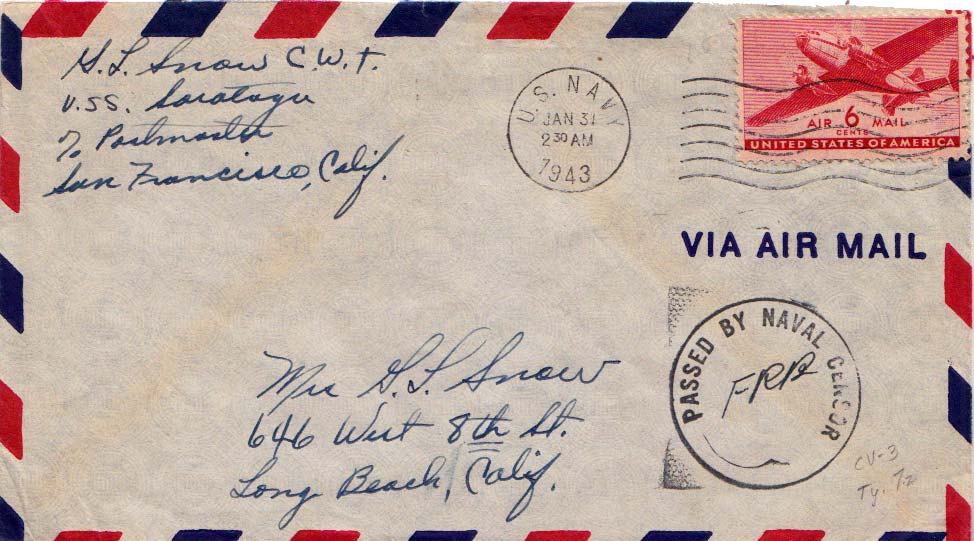 G. L. Snow C.W.T.
U.S.S. Saratoga
℅ Postmaster
San Francisco, Calif.
U.S. NAVY
JAN 31
2 30 AM
1943
AIR 6 MAIL
CENTS
UNITED STATES OF AMERICA
VIA AIR MAIL
PASSED BY NAVAL CENSOR
FRB
Mrs G. L. Snow
646 West 8th St.
Long Beach, Calif.
CV-3
Ty.